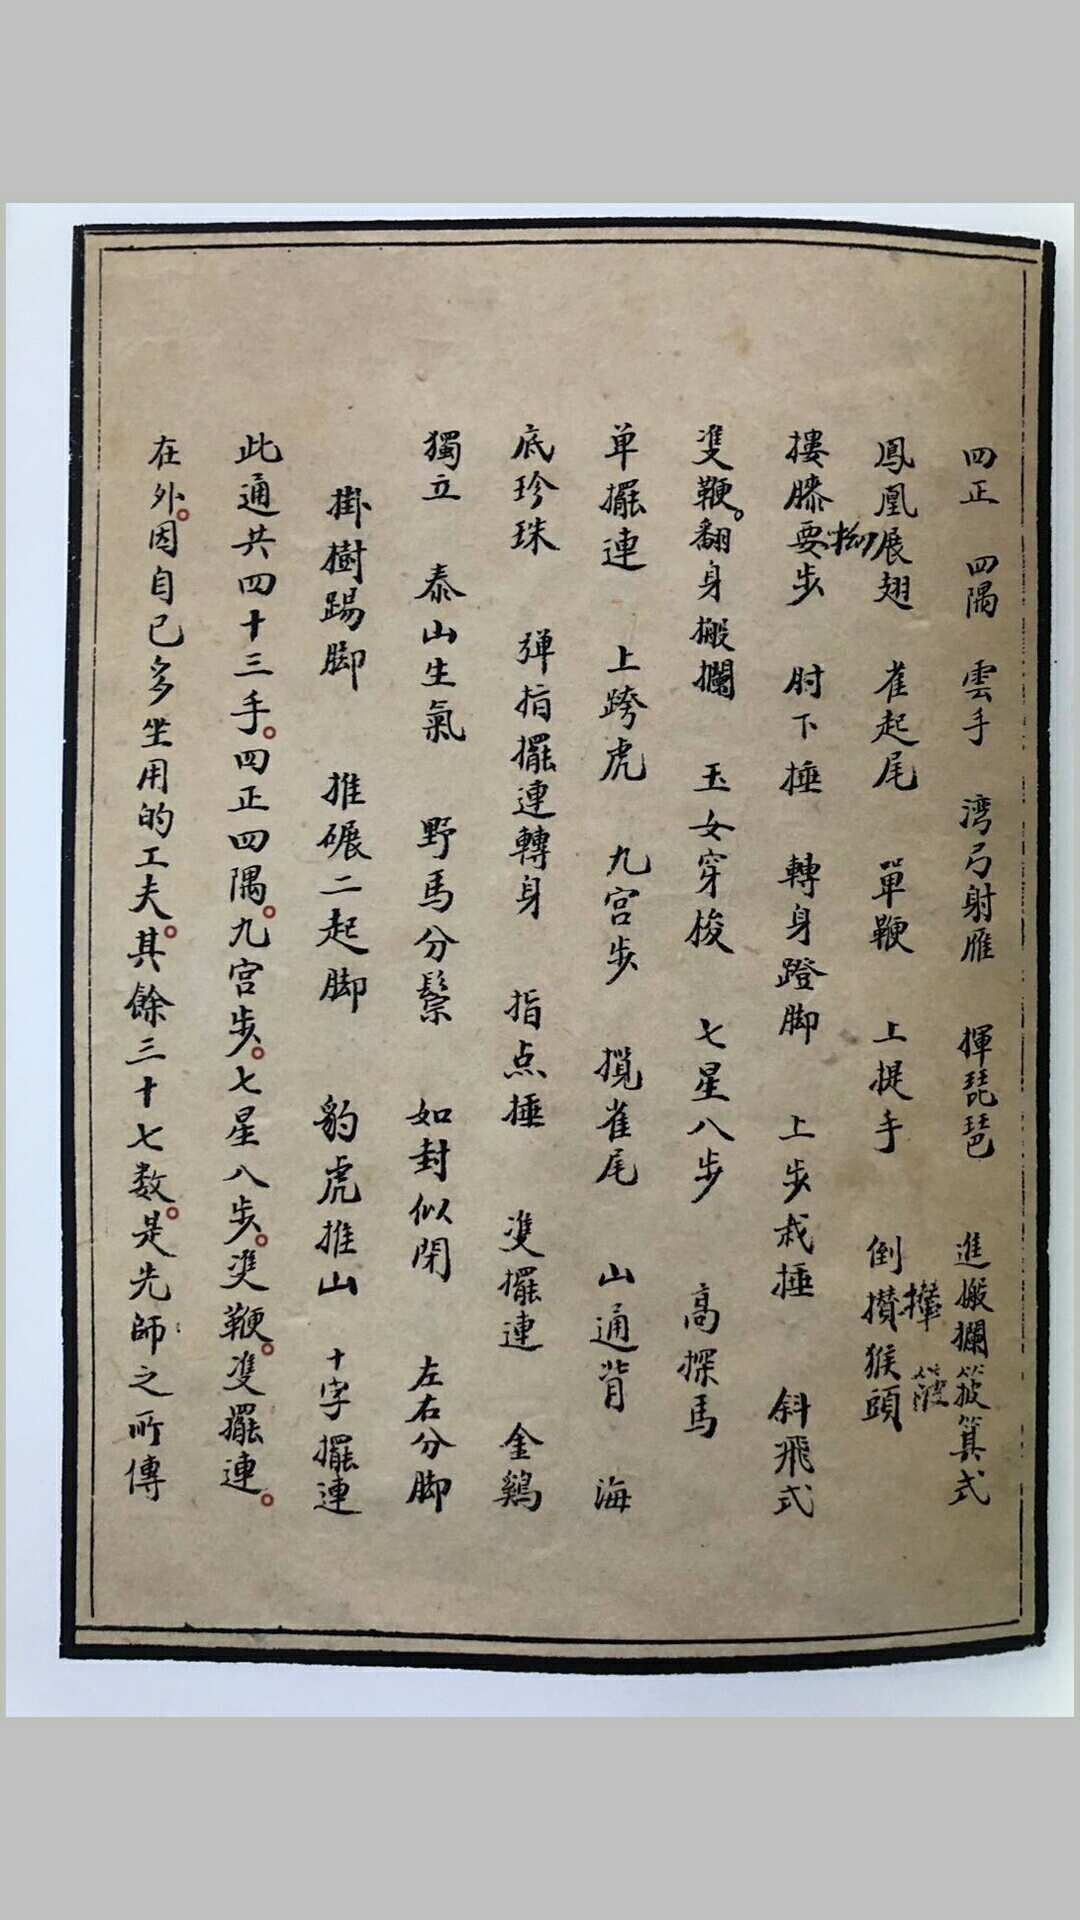 四正　四隅　雲手　湾弓射雁　揮琵琶　進搬攔　簸箕式
鳳凰展翅　雀起尾　單鞭　上提手　倒攆猴頭
摟膝要步　肘下捶　轉身蹬脚　上步栽捶　斜飛式
拗
雙鞭。翻身搬攔　玉女穿梭　七星八步　高探馬
单擺連　上跨虎　九宮步　攬雀尾　山通背　海
底珍珠　弹指擺連轉身　指点捶　雙擺連　金鷄
獨立　泰山生氣　野馬分鬃　如封似閉　左右分脚
掛樹踢脚　推碾二起脚　豹虎推山　十字擺連
此通共四十三手。四正四隅。九宮步。七星八步。雙鞭。雙擺連。
在外。因自己多坐用的工夫。其餘三十七数。是先師之所傳